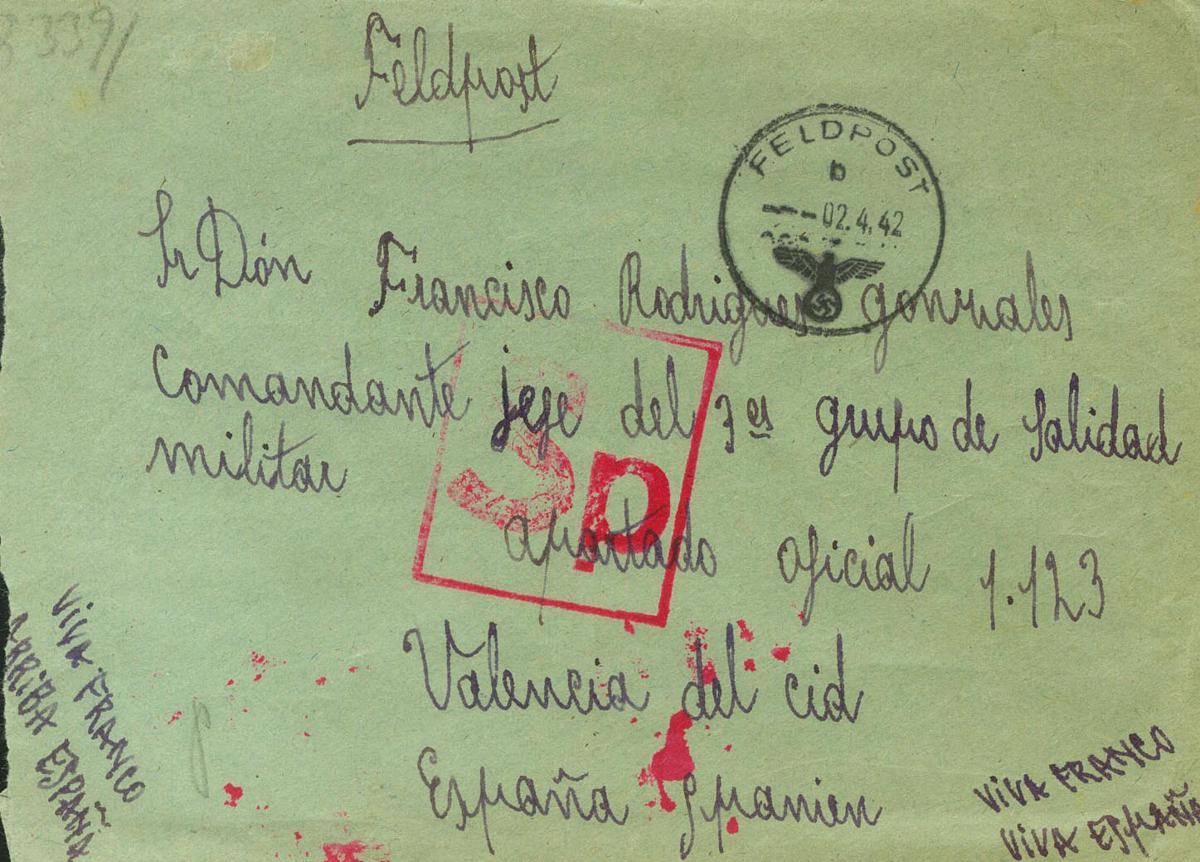 3391
Feldpost
FELDPOST
b
02.4.42
Sr Dón Francisco Rodrigues gonzales
Comandante jefe del 3er grupo de Salidad
militar
Sp
apartado oficial 1.123
Valencia del cid
España Spanien
VIVA FRANCO
ARRIBA ESPAÑA
VIVA FRANCO
VIVA ESPAÑA